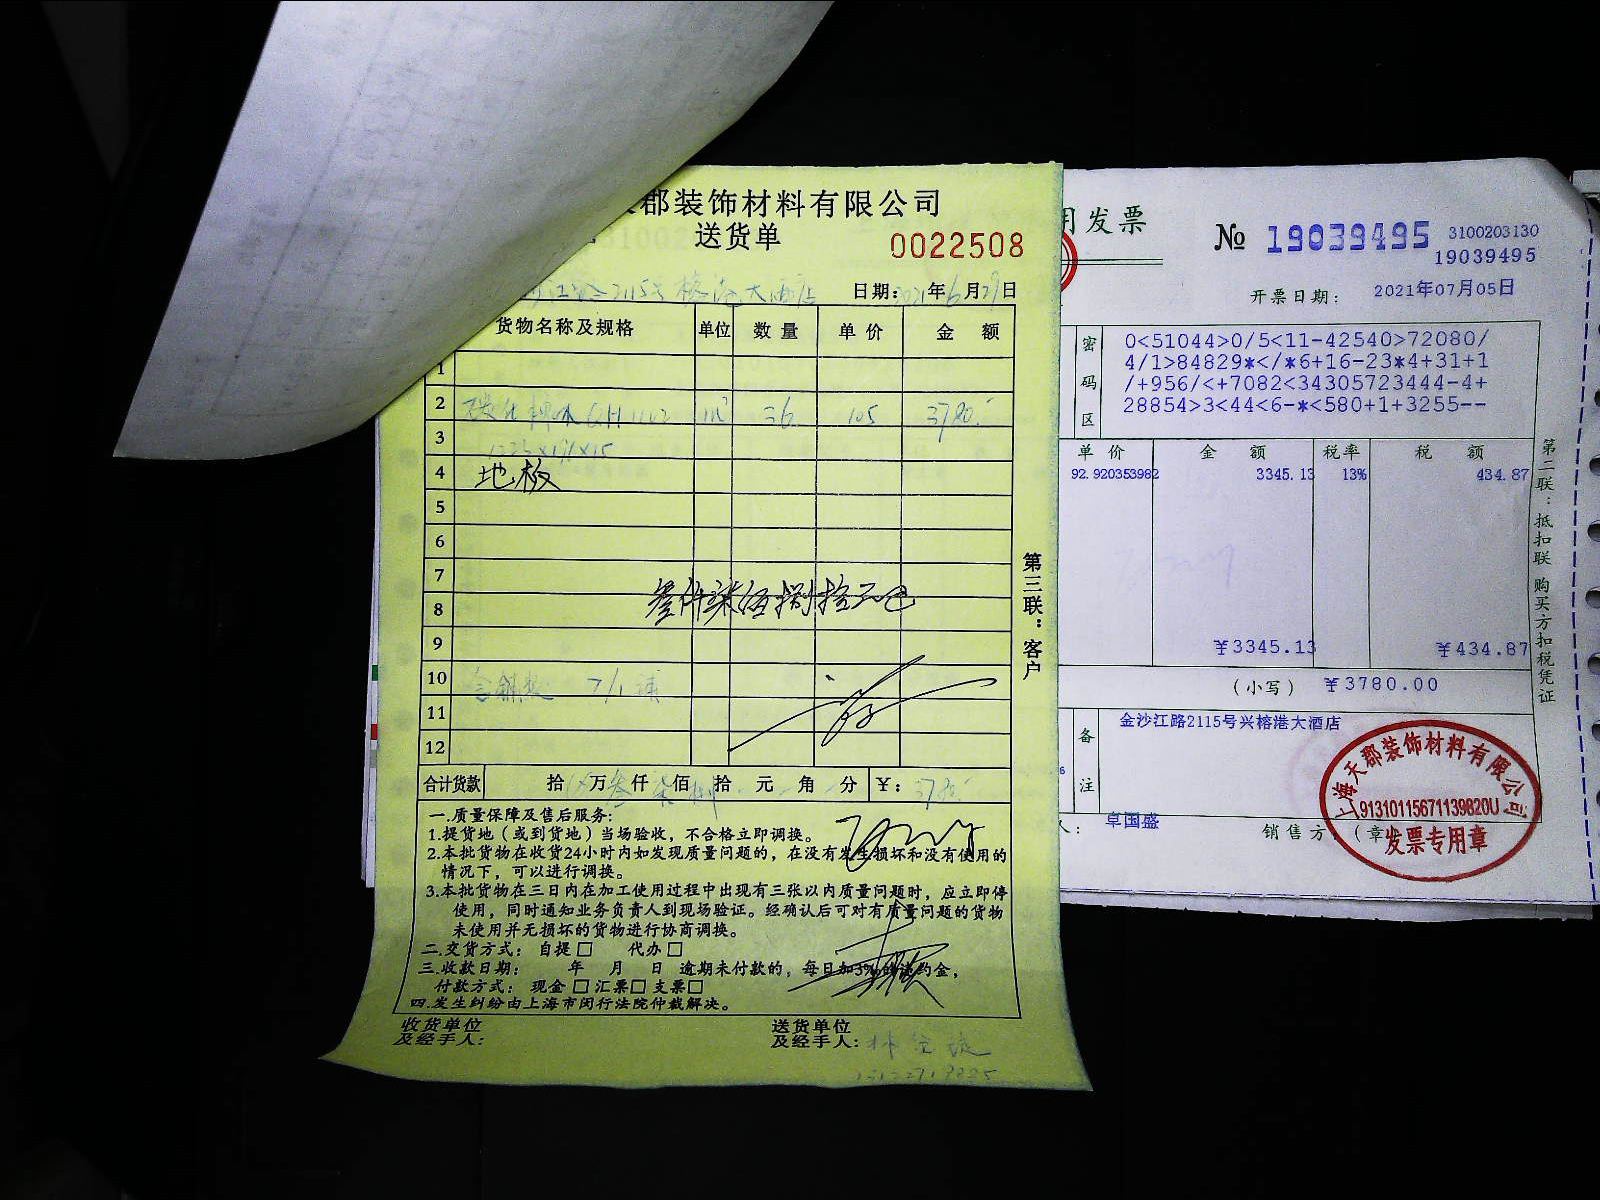 郡装饰材料有限公司
送货单
0022508
日期: 2021年6月29日
货物名称及规格 单位 数量 单价 金额
1
2 m² 36 105 3780.
3
4 地板
5
6
7
8 叁仟柒佰捌拾元
9
10
11
12
合计货款 拾 万 仟 佰 拾 元 角 分 ¥: 3780
第三联:客户
一.质量保障及售后服务:
1.提货地(或到货地)当场验收,不合格立即调换。
2.本批货物在收货24小时内如发现质量问题的,在没有发生损坏和没有使用的
情况下,可以进行调换。
3.本批货物在三日内在加工使用过程中出现有三张以内质量问题时,应立即停
使用,同时通知业务负责人到现场验证。经确认后可对有质量问题的货物
未使用并无损坏的货物进行协商调换。
二.交货方式: 自提□ 代办□
三.收款日期: 年 月 日 逾期未付款的,每日加3%的违约金,
付款方式: 现金□汇票□支票□
四.发生纠纷由上海市闵行法院仲裁解决。
收货单位
及经手人:
送货单位
及经手人:
用发票
№ 19039495 3100203130
19039495
开票日期: 2021年07月05日
密码区
0<51044>0/5<11-42540>72080/
4/1>84829*</*6+16-23*4+31+1
/+956/<+7082<34305723444-4+
28854>3<44<6-*<580+1+3255--
单价 金额 税率 税额
92.920353982 3345.13 13% 434.87
¥3345.13 ¥434.87
(小写) ¥3780.00
备注
金沙江路2115号兴榕港大酒店
卓国盛
销售方:(章)
上海天郡装饰材料有限公司
91310115671139820U
发票专用章
第二联:抵扣联 购买方扣税凭证